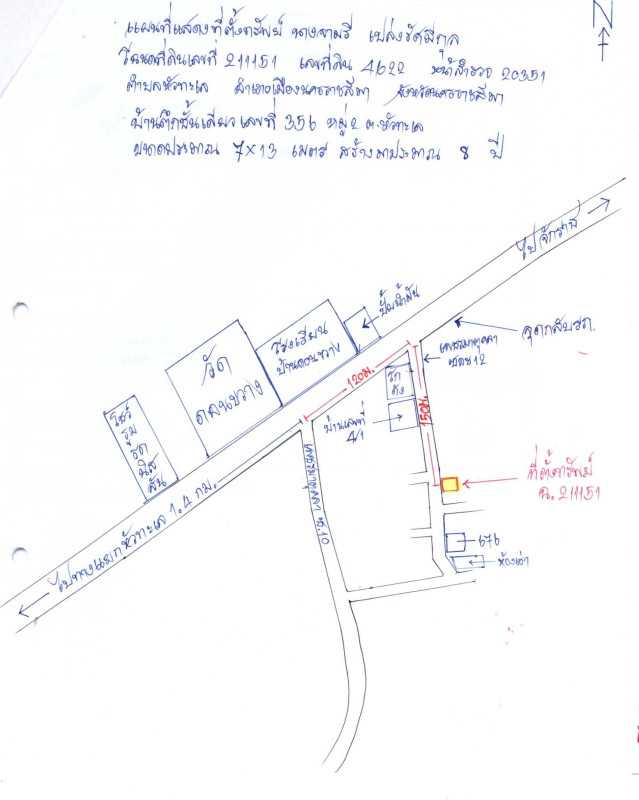 N
แผนที่แสดงที่ตั้งทรัพย์ นางจามรี เปล่งรัศมีกุล
โฉนดที่ดินเลขที่ 211151 เลขที่ดิน 4622 หน้าสำรวจ 20351
ตำบลหัวทะเล อำเภอเมืองนครราชสีมา จังหวัดนครราชสีมา
บ้านตึกชั้นเดียวเลขที่ 356 หมู่ 2 ต.หัวทะเล
ขนาดประมาณ 7×13 เมตร สร้างมาประมาณ 8 ปี
ไปจักราช
ปั้มน้ำมัน
จุดกลับรถ.
โรงเรียน
บ้านดอนขวาง
วัด
ดอนขวาง
ซอย 12
120ม.
150ม.
โชว์
รูม
รถ
นิส
สัน
บ้านเลขที่
4/1
ที่ตั้งทรัพย์
ฉ. 211151
ซ.10
ไปทางแยกหัวทะเล 1.4 กม.
676
ห้องเช่า